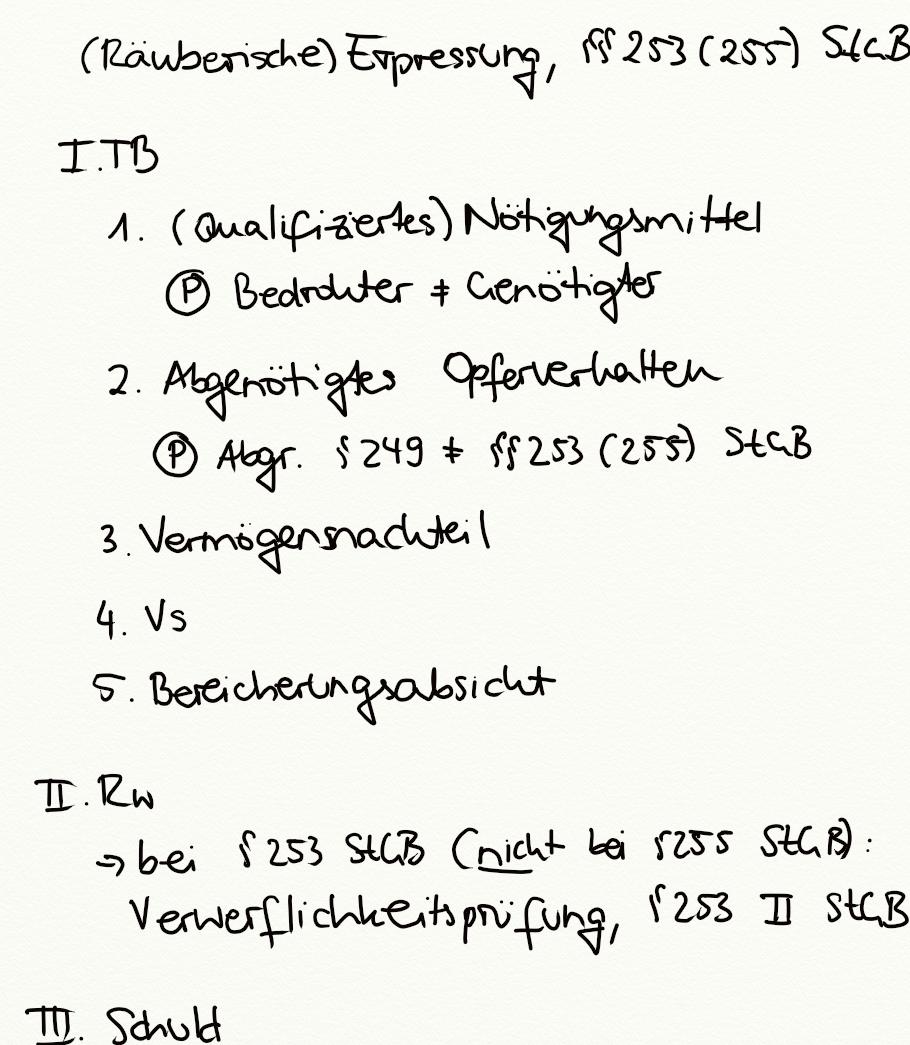 (Räuberische) Erpressung, §§ 253 (255) StGB
I. TB
1. (Qualifiziertes) Nötigungsmittel
Ⓟ Bedrohter ≠ Genötigter
2. Abgenötigtes Opferverhalten
Ⓟ Abgr. § 249 ≠ §§ 253 (255) StGB
3. Vermögensnachteil
4. Vs
5. Bereicherungsabsicht
II. Rw
→ bei § 253 StGB (nicht bei § 255 StGB):
Verwerflichkeitsprüfung, § 253 II StGB
III. Schuld